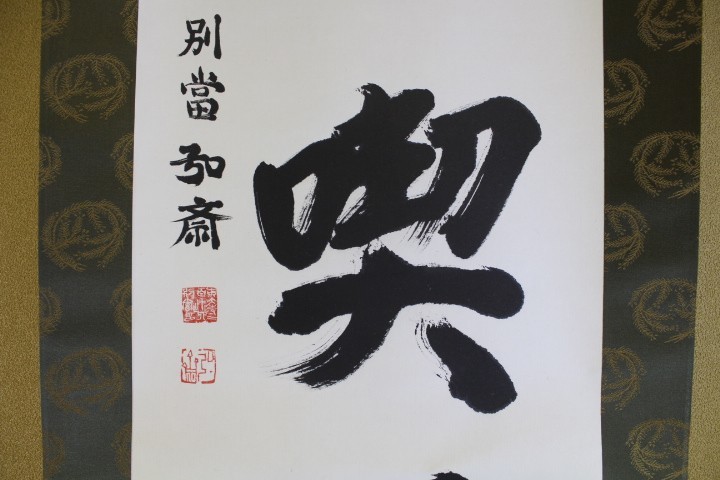 喫
別當弘斎